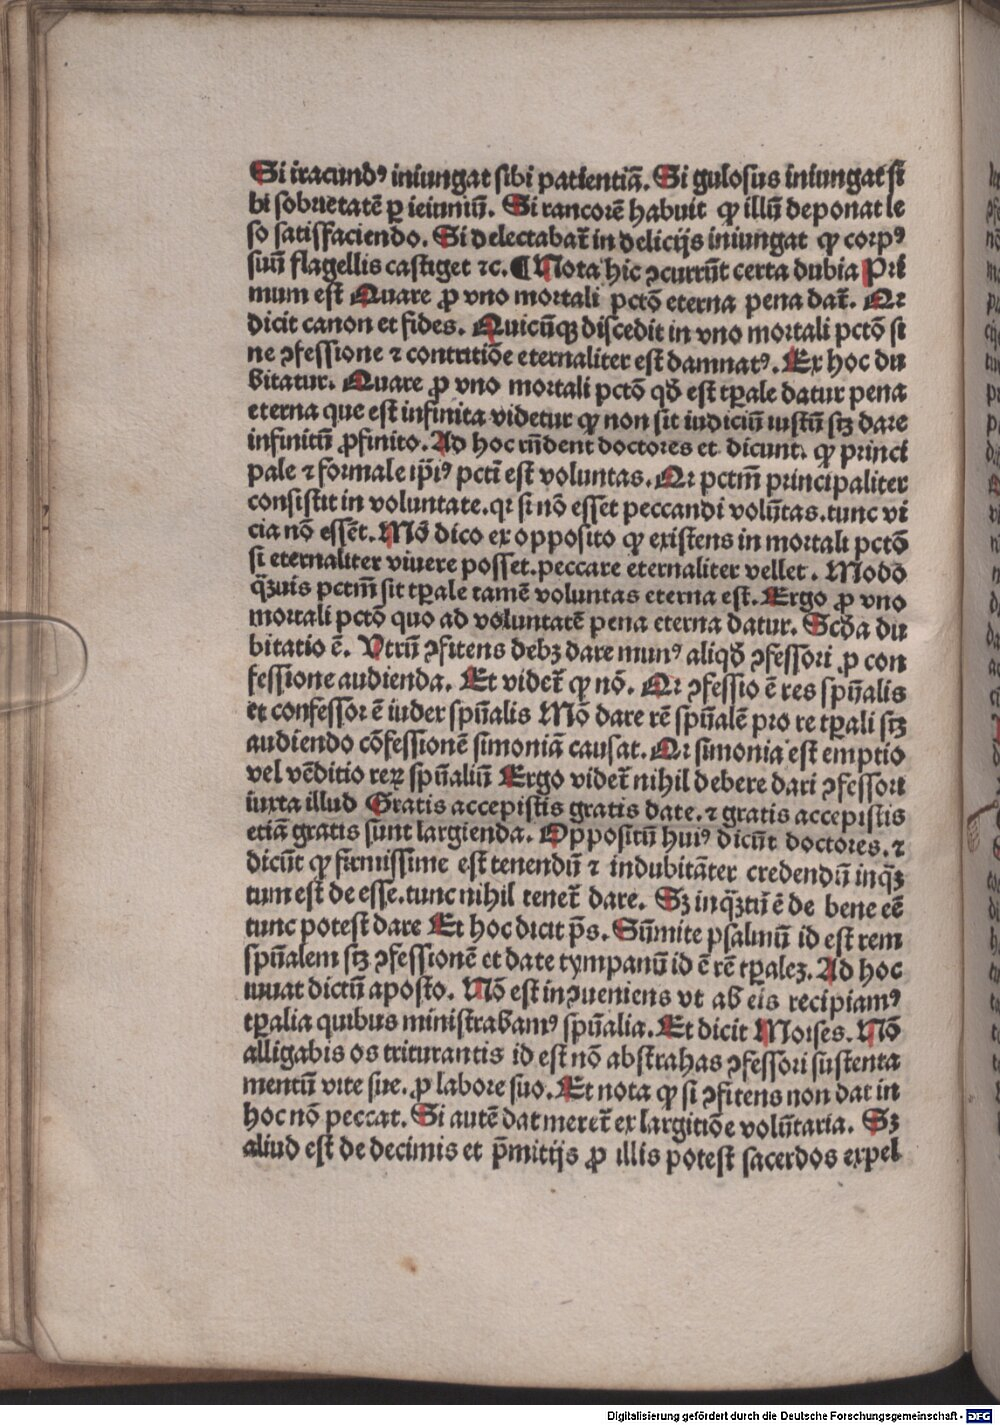 Si iracundꝰ iniungat sibi patientiā. Si gulosus iniungat si
bi sobrietatē ꝑ ieiuniū. Si rancorē habuit ꝙ illū deponat le
so satisfaciendo. Si delectabat᷑ in delicijs iniungat ꝙ corpꝰ
suū flagellis castiget ⁊c. ¶ Nota hic ꝯcurrūt certa dubia Pri
mum est Quare ꝓ vno mortali pctō eterna pena dat᷑. Qr
dicit canon et fides. Quicūqꝫ discedit in vno mortali pctō si
ne ꝯfessione ⁊ contritiōe eternaliter est damnatꝰ. Ex hoc du
bitatur. Quare ꝓ vno mortali pctō qd̄ est tꝑale datur pena
eterna que est infinita videtur ꝙ non sit iudiciū iustū sꝫ dare
infinitū ꝓ finito. Ad hoc rn̄dent doctores et dicunt. ꝙ princi
pale ⁊ formale ip̄iꝰ pcti est voluntas. Qr pctm̄ principaliter
consistit in voluntate. qr si nō esset peccandi volūtas. tunc vi
cia nō essēt. Mō dico ex opposito ꝙ existens in mortali pctō
si eternaliter viuere posset. peccare eternaliter vellet. Modō
qꝫuis pctm̄ sit tꝑale tamē voluntas eterna est. Ergo ꝓ vno
mortali pctō quo ad voluntatē pena eterna datur. Scd̄a du
bitatio ē. Vtrū ꝯfitens debꝫ dare munꝰ aliqd̄ ꝯfessori ꝓ con
fessione audienda. Et videt᷑ ꝙ nō. Qr ꝯfessio ē res spūalis
et confessor ē iudex spūalis Mō dare rē spūalē pro re tꝑali sꝫ
audiendo cōfessionē simoniā causat. Qr simonia est emptio
vel vēditio reꝝ spūaliū Ergo videt᷑ nihil debere dari ꝯfessori
iuxta illud Gratis accepistis gratis date. ⁊ gratis accepistis
etiā gratis sunt largienda. Oppositū huiꝰ dicūt doctores. ⁊
dicūt ꝙ firmissime est tenendū ⁊ indubitāter credendū inqꝫ
tum est de esse. tunc nihil tenet᷑ dare. Sꝫ inqꝫtū ē de bene eē
tunc potest dare Et hoc dicit p̄s. Sūmite psalmū id est rem
spūalem sꝫ ꝯfessionē et date tympanū id ē rē tꝑaleꝫ. Ad hoc
iuuat dictū aposto. Nō est inꝯueniens vt ab eis recipiamꝰ
tꝑalia quibus ministrabamꝰ spūalia. Et dicit Moises. Nō
alligabis os triturantis id est nō abstrahas ꝯfessori sustenta
mentū vite sue. ꝓ labore suo. Et nota ꝙ si ꝯfitens non dat in
hoc nō peccat. Si autē dat meret᷑ ex largitiōe volūtaria. Sꝫ
aliud est de decimis et p̄mitijs ꝓ illis potest sacerdos expel
Digitalisierung gefördert durch die Deutsche Forschungsgemeinschaft - DFG